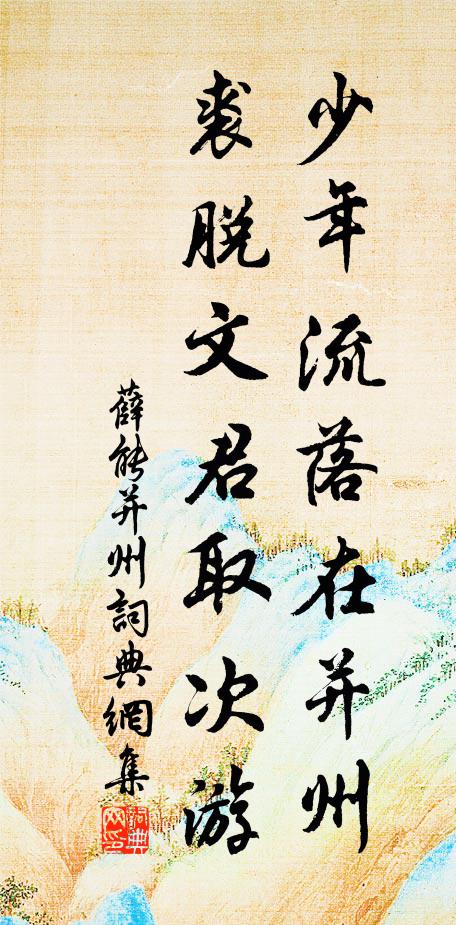 少年流落在并州
裘脫文君取次游
薛能并州詞典網集
詞典网印